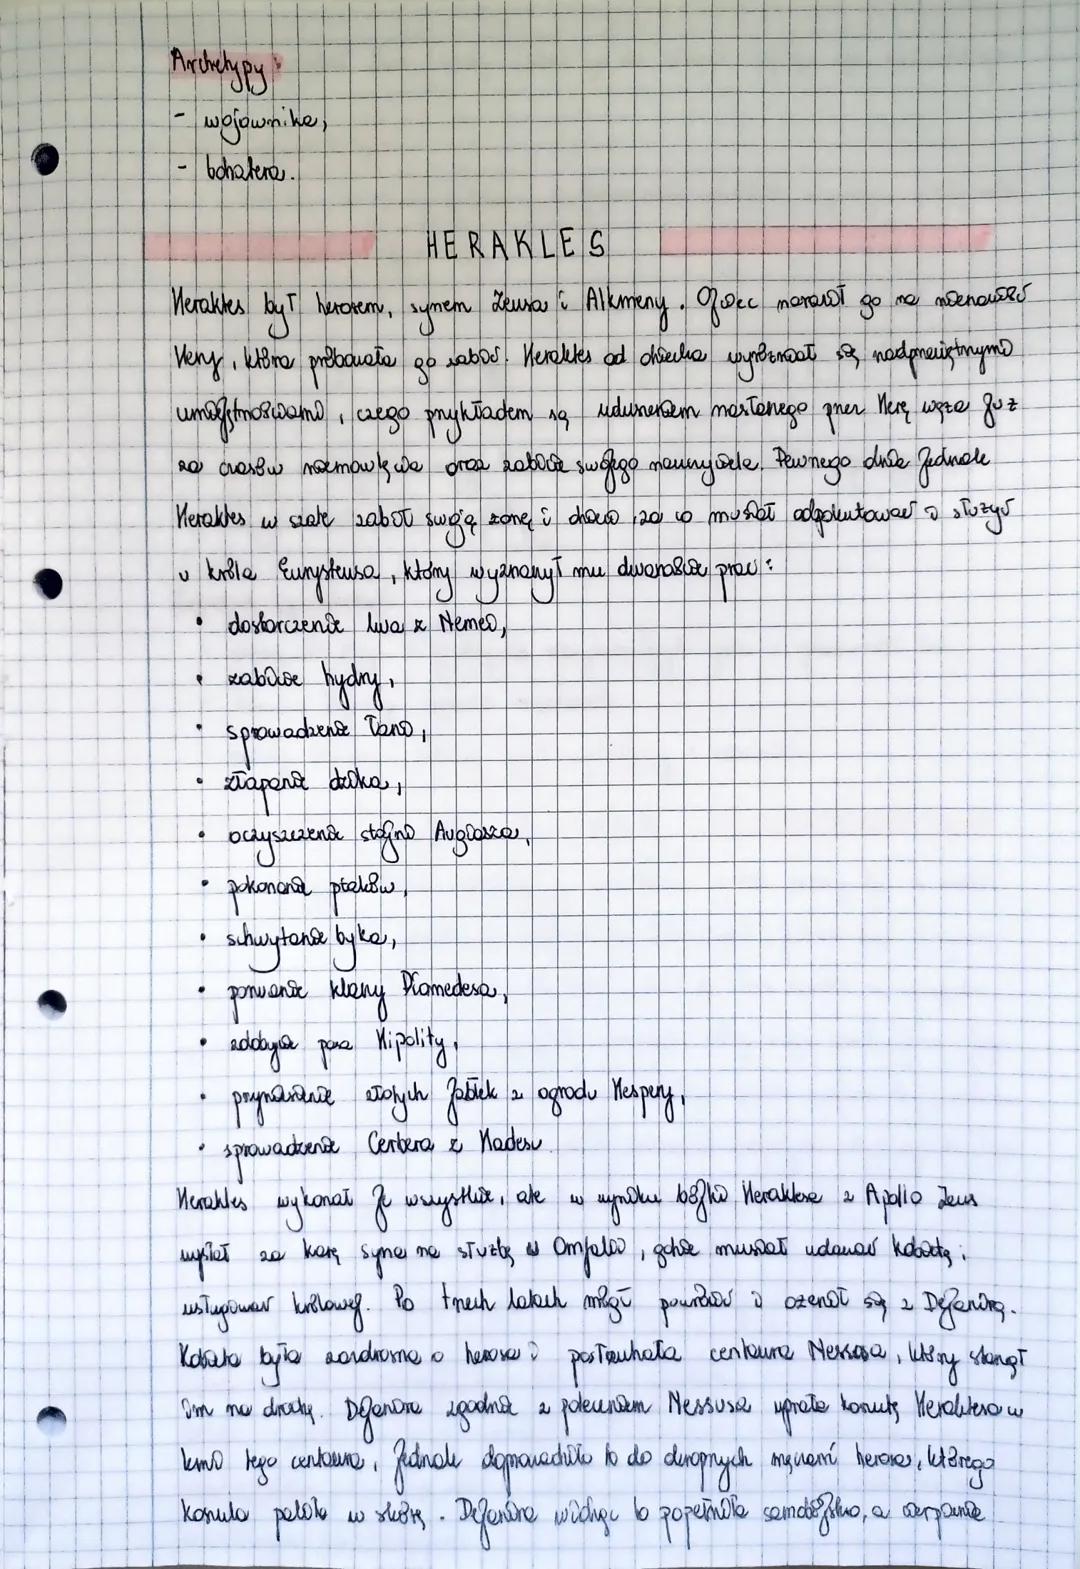 Archetypy:
- wojownika,
- bohatera.
HERAKLES
Herakles był herosem, synem Zeusa i Alkmeny. Ojciec naraził go na nienawiść
Hery, która próbowała go zabić. Herakles od dziecka wyróżniał się nadprzeciętnymi
umiejętnościami, czego przykładem są uduszeniem nasłanego przez Herę węża już
za czasów niemowlęcia oraz zabicie swojego nauczyciela. Pewnego dnia jednak
Herakles w szale zabił swoją żonę i dzieci, za co musiał odpokutować i służyć
u króla Eurysteusa, który wyznaczył mu dwanaście prac:
• dostarczenie lwa z Nemei,
• zabicie hydry,
• sprowadzenie łani,
• złapanie dzika,
• oczyszczenie stajni Augiasza,
• pokonanie ptaków,
• schwytanie byka,
• porwanie klaczy Diomedesa,
• zdobycie pasa Hipolity,
• przyniesienie złotych jabłek z ogrodu Hespery,
• sprowadzenie Cerbera z Hadesu
Herakles wykonał je wszystkie, ale w wyniku bójki Heraklesa z Apollo Zeus
wysłał za karę syna na służbę w Omfalii, gdzie musiał udawać kobietę i
usługiwać królowej. Po trzech latach mógł powrócić i ożenił się z Dejanirą.
Kobieta była zazdrosna o herosa i posłuchała centaura Nessosa, który stanął
im na drodze. Dejanira zgodnie z poleceniem Nessusa uprała koszulę Heraklesa w
krwi tego centaura, jednak doprowadziło to do okropnych męczarni herosa, którego
koszula paliła w skórę. Dejanira widząc to popełniła samobójstwo, a cierpienie